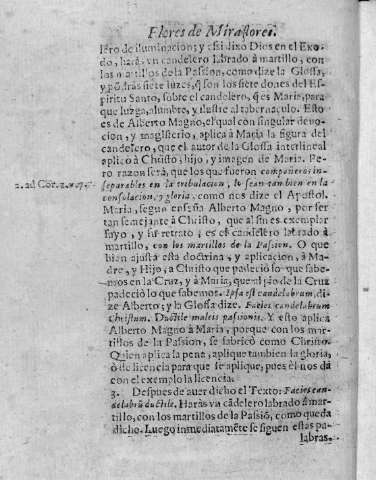 Flores de Miraflores.
lero de iluminacion; y assi dixo Dios en el Exo-
do, harás vn candelero labrado à martillo, con
los martillos de la Passion, como dize la Glossa,
y põdràs siete luzes, q̃ son los siete dones del Es-
piritu Santo, sobre el candelero, q̃ es Maria, para
que luzga, alumbre, y ilustre al tabernaculo. Esto
es de Alberto Magno, el qual con singular devo-
cion, y magisterio, aplica à Maria la figura del
candelero, que el autor de la Glossa interlineal
aplicò à Christo, hijo, y imagen de Maria. Pe-
ro razon serà, que los que fueron compañeros in-
2. ad Cor. 2. v. 7.
separables en la tribulacion, lo sean tambien en la
consolacion, y gloria, como nos dize el Apostol.
Maria, segun enseña Alberto Magno, por ser
tan semejante à Christo, que al fin es exemplar
suyo, y su retrato; es el candelero labrado à
martillo, con los martillos de la Passion. O que
bien ajusta esta doctrina, y aplicacion, à Ma-
dre, y Hijo, à Christo que padeciò lo que sabe-
mos en la Cruz, y à Maria, que al pie de la Cruz
padeciò lo que sabemos. Ipsa est candelabrum, di-
ze Alberto; y la Glossa dize. Facies candelabrum
Christum. Ductile maleis passionis. Y esto aplica
Alberto Magno à Maria, porque con los mar-
tillos de la Passion, se fabricò como Christo.
Quien aplica la pena, aplique tambien la gloria,
ò dè licencia para que se aplique, pues èl nos dà
con el exemplo la licencia.
3. Despues de auer dicho el Texto: Facies can-
delabrũ ductile. Haràs vn cãdelero labrado à mar-
tillo, con los martillos de la Passiõ, como queda
dicho. Luego inmediatamẽte se siguen estas pa-
labras.